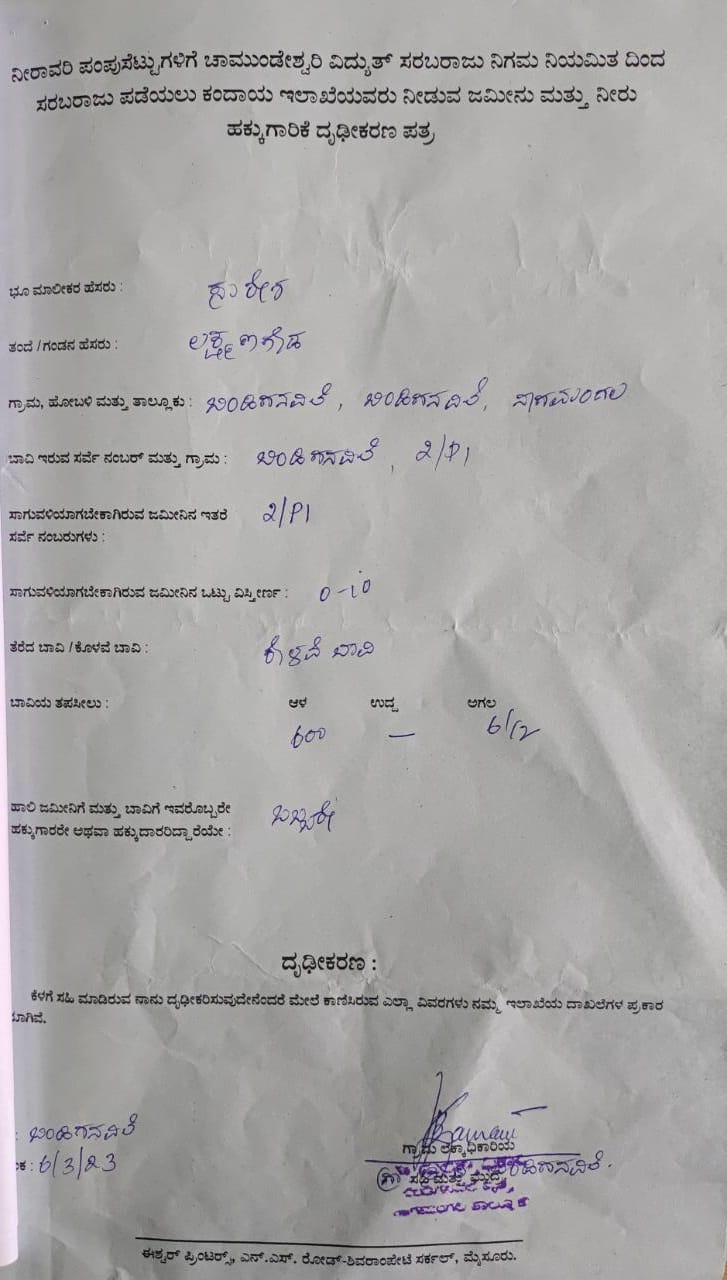 ನೀರಾವರಿ ಪಂಪುಸೆಟ್ಟುಗಳಿಗೆ ಚಾಮುಂಡೇಶ್ವರಿ ವಿದ್ಯುತ್ ಸರಬರಾಜು ನಿಗಮ ನಿಯಮಿತ ದಿಂದ
ಸರಬರಾಜು ಪಡೆಯಲು ಕಂದಾಯ ಇಲಾಖೆಯವರು ನೀಡುವ ಜಮೀನು ಮತ್ತು ನೀರು
ಹಕ್ಕುಗಾರಿಕೆ ದೃಢೀಕರಣ ಪತ್ರ
ಭೂ ಮಾಲೀಕರ ಹೆಸರು : ಸುರೇಶ
ತಂದೆ /ಗಂಡನ ಹೆಸರು : ಲಕ್ಷ್ಮಣಗೌಡ
ಗ್ರಾಮ, ಹೋಬಳಿ ಮತ್ತು ತಾಲ್ಲೂಕು : ಬಿಂಡಿಗನವಿಲೆ, ಬಿಂಡಿಗನವಿಲೆ, ನಾಗಮಂಗಲ
ಬಾವಿ ಇರುವ ಸರ್ವೆ ನಂಬರ್ ಮತ್ತು ಗ್ರಾಮ : ಬಿಂಡಿಗನವಿಲೆ, 2/P1
ಸಾಗುವಳಿಯಾಗಬೇಕಾಗಿರುವ ಜಮೀನಿನ ಇತರೆ 2/P1
ಸರ್ವೆ ನಂಬರುಗಳು :
ಸಾಗುವಳಿಯಾಗಬೇಕಾಗಿರುವ ಜಮೀನಿನ ಒಟ್ಟು ವಿಸ್ತೀರ್ಣ : 0-10
ತೆರೆದ ಬಾವಿ /ಕೊಳವೆ ಬಾವಿ : ಕೊಳವೆ ಬಾವಿ
ಬಾವಿಯ ತಪಸೀಲು : ಆಳ ಉದ್ದ ಅಗಲ
600 — 6 1/2
ಹಾಲಿ ಜಮೀನಿಗೆ ಮತ್ತು ಬಾವಿಗೆ ಇವರೊಬ್ಬರೇ ಒಬ್ಬರೇ
ಹಕ್ಕುಗಾರರೇ ಅಥವಾ ಹಕ್ಕುದಾರರಿದ್ದಾರೆಯೇ :
ದೃಢೀಕರಣ :
ಕೆಳಗೆ ಸಹಿ ಮಾಡಿರುವ ನಾನು ದೃಢೀಕರಿಸುವುದೇನೆಂದರೆ ಮೇಲೆ ಕಾಣಿಸಿರುವ ಎಲ್ಲಾ ವಿವರಗಳು ನಮ್ಮ ಇಲಾಖೆಯ ದಾಖಲೆಗಳ ಪ್ರಕಾರ
ಯಾಗಿವೆ.
: ಬಿಂಡಿಗನವಿಲೆ
ಕ : 6/3/23
ಗ್ರಾಮ ಲೆಕ್ಕಾಧಿಕಾರಿಯ
ಸಹಿ ಮತ್ತು ಮುದ್ರೆ
ತಾಲ್ಲೂಕು
ಈಶ್ವರ್ ಪ್ರಿಂಟರ್ಸ್, ಎನ್.ಎಸ್. ರೋಡ್-ಶಿವರಾಂಪೇಟೆ ಸರ್ಕಲ್, ಮೈಸೂರು.